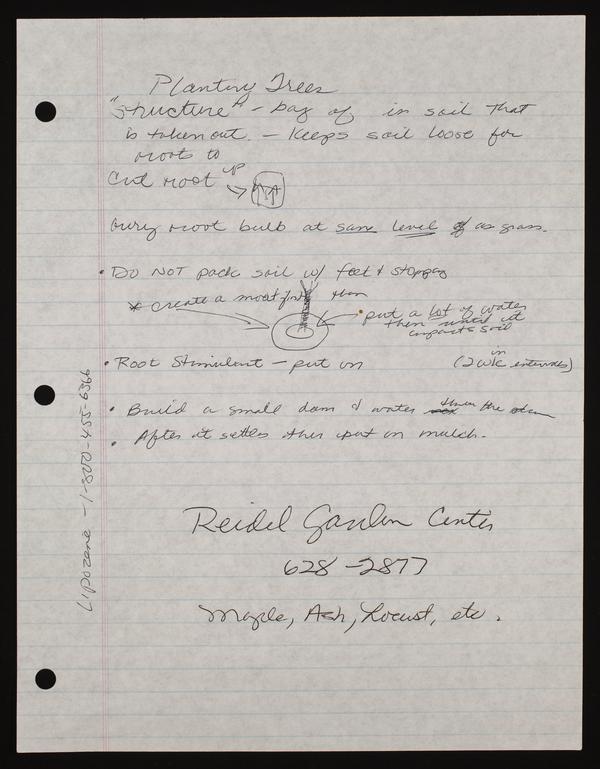 Planting Trees
"structure" - bag of in soil that
is taken out. - Keeps soil loose for
roots to
Cut root up
bury root bulb at same level of as grass.
• DO NOT pack soil w/ feet &
* create a moat first then
• put a lot of water
then until it
compacts soil
• Root Stimulant - put on (2 wk in intervals)
• Build a small dam & water then the
• After it settles then put on mulch.
Reidel Garden Center
628-2877
Maple, Ash, Locust, etc.
Lipozene - 1-800-455-6366